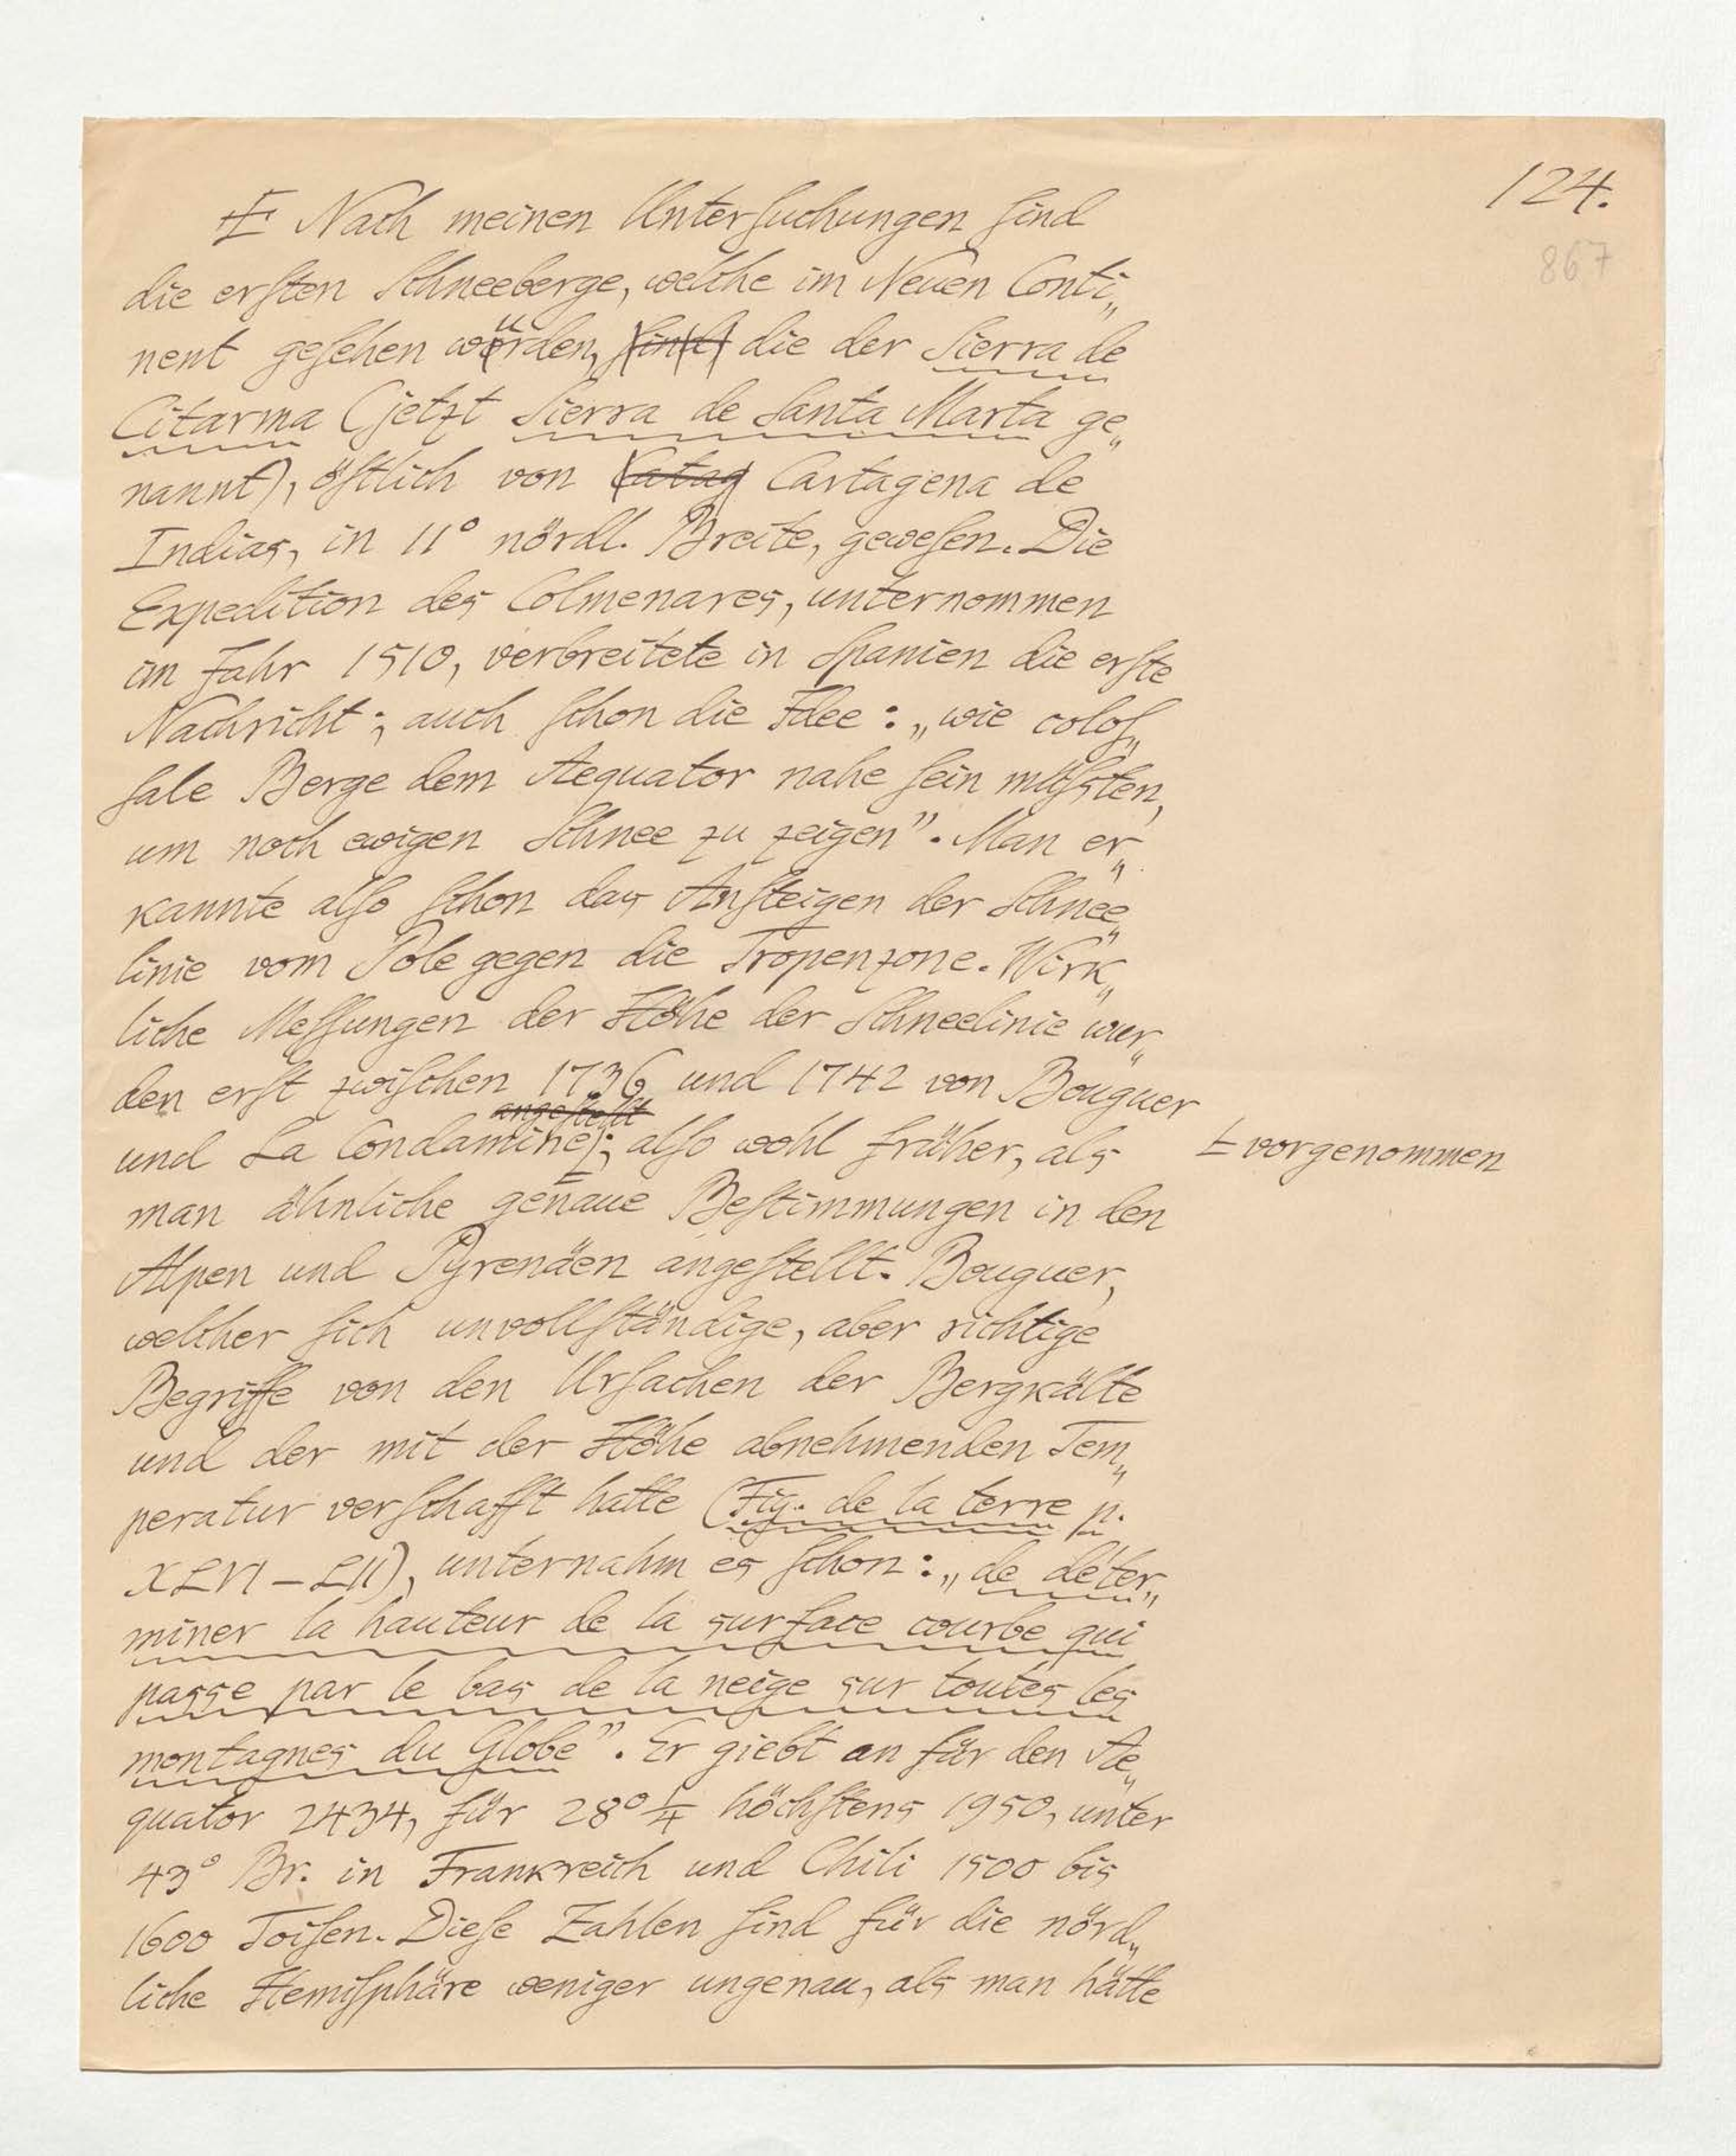 124.
867
Ⱶ Nach meinen Unterſuchungen ſind
die erſten Schneeberge, welche im Neuen Conti„
nent geſehen wurden, ſind die der Sierra de
Citarma (jetzt Sierra de Santa Marta ge„
nannt), öſtlich von Catag Cartagena de
Indias, in 11° nördl. Breite, geweſen. Die
Expedition des Colmenares, unternommen
im Jahr 1510, verbreitete in Spanien die erſte
Nachricht; auch ſchon die Idee: „wie coloſ„
ſale Berge dem Aequator nahe ſein müſsten,
um noch ewigen Schnee zu zeigen”. Man er„
kannte alſo ſchon das Anſteigen der Schnee„
linie vom Pole gegen die Tropenzone. Wirk„
liche Meſſungen der Höhe der Schneelinie wur„
den erſt zwiſchen 1736 und 1742 von Bouguer
angeſtellt
und La Condamine; alſo wohl früher, als Ⱶ vorgenommen
man ähnliche genaue Beſtimmungen in den
Alpen und Pyrenäen angeſtellt. Bouguer,
welcher ſich unvollſtändige, aber richtige
Begriffe von den Urſachen der Bergkälte
und der mit der Höhe abnehmenden Tem„
peratur verſchafft hatte (Fig. de la terre p.
XLVI – LII), unternahm es ſchon: „de déter„
miner la hauteur de la surface courbe qui
passe par le bas de la neige sur toutes les
montagnes du Globe”. Er giebt an für den Ae„
quator 2434, für 28° 1/4 höchſtens 1950, unter
43° Br. in Frankreich und Chili 1500 bis
1600 Toiſen. Dieſe Zahlen ſind für die nörd„
liche Hemiſphäre weniger ungenau, als man hätte